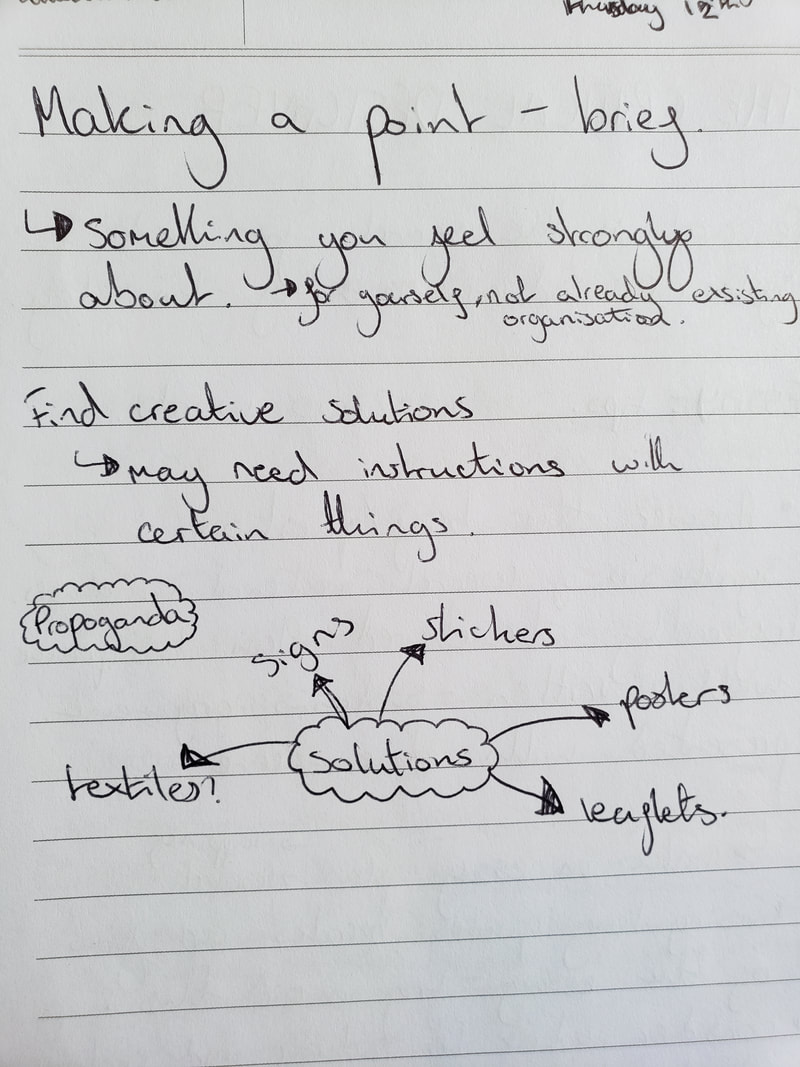 Thursday 12th
Making a point - brief.
↳ Something you feel strongly
about. → for yourself, not already exsisting
organisation.
Find creative solutions
↳ may need instructions with
certain things.
Propoganda
signs
stickers
posters
solutions
textiles?
leaflets.